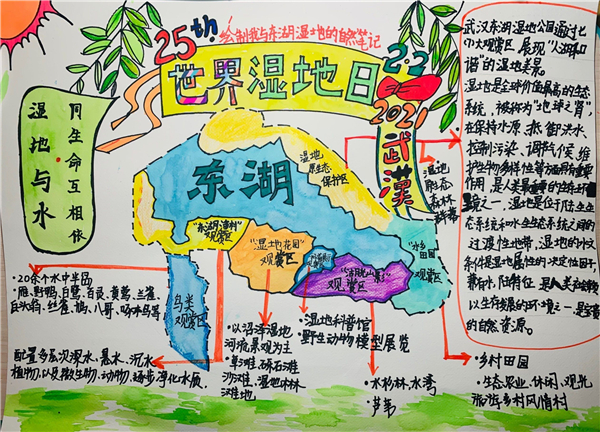 25th
绘制我与东湖湿地的自然笔记
世界湿地日
2.2
2021
武漢
湿地与水
同生命互相依
东湖
湿地
原生态
保护区
湿地
生态
森林
群落
"东湖渔村"
观赏区
"湿地花园"
观赏区
观赏区
"水乡
田园"
观赏区
鸟类
观赏区
·20余个水中半岛
·雁、野鸭、白鹭、百灵、黄莺、兰雀、
配置多层次深水、悬水、沉水
植物,以及微生物、动物,逐步净化水质。
·以沼泽湿地
河流景观为主
·草滩、砾石滩
沙滩、湿地林
滩地
·湿地科普馆
·野生动物模型展览
·水杉林、水湾
·芦苇
·乡村田园
·生态农业、休闲、观光
旅游乡村风情村
武汉东湖湿地公园通过七
个大观赏区,展现"人湖和
谐"的湿地美景。
湿地是全球价值最高的生态
系统,被称为"地球之肾"
在保持水源、抵御洪水、
控制污染、调节气候、维
护生物多样性等方面有重要
作用,是人类最重要的生存环
境之一,湿地是位于陆生生
态系统和水生生态系统之间的
过渡性地带,湿地的水文
条件是湿地属性的决定性因子,
以生存发展的环境之一,是宝贵
的自然资源。